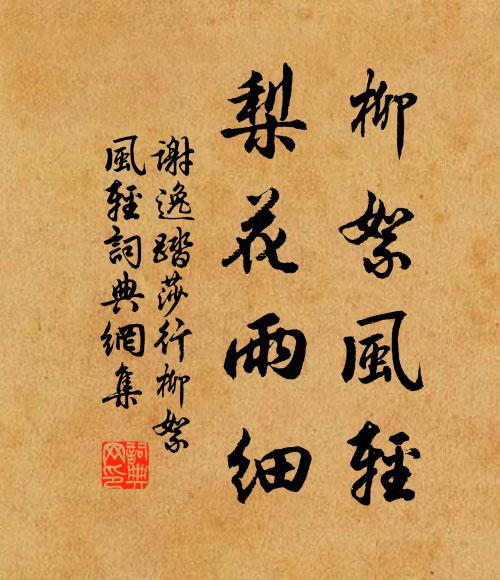 柳絮風輕
梨花雨細
謝逸踏莎行柳絮
風輕詞典網集
詞典
网印